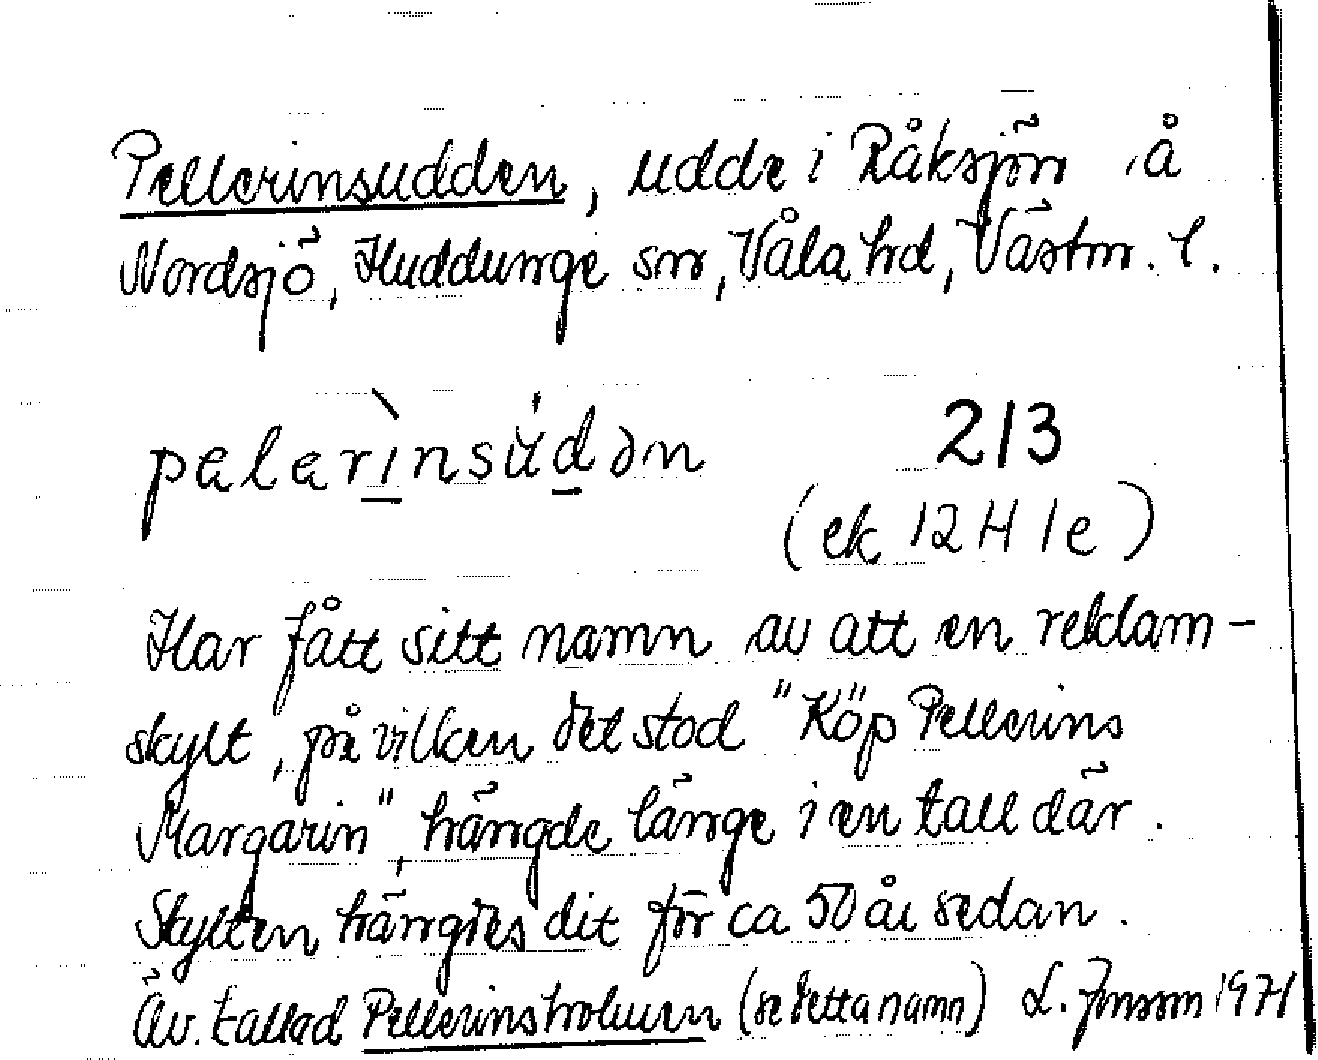 Pellerinsudden, udde i Råksjön, å
Nordsjö, Huddunge sn, Våla hd, Västm. l.
pelerìnsúdən 213
(ek 12 H 1e)
Har fått sitt namn av att en reklam-
skylt, på vilken det stod "Köp Pellerins
Margarin", hängde länge i en tall där.
Skylten hängdes dit för ca 50 år sedan.
Äv. kallad Pellerinsholmen (se detta namn) L. Jonsson 1971